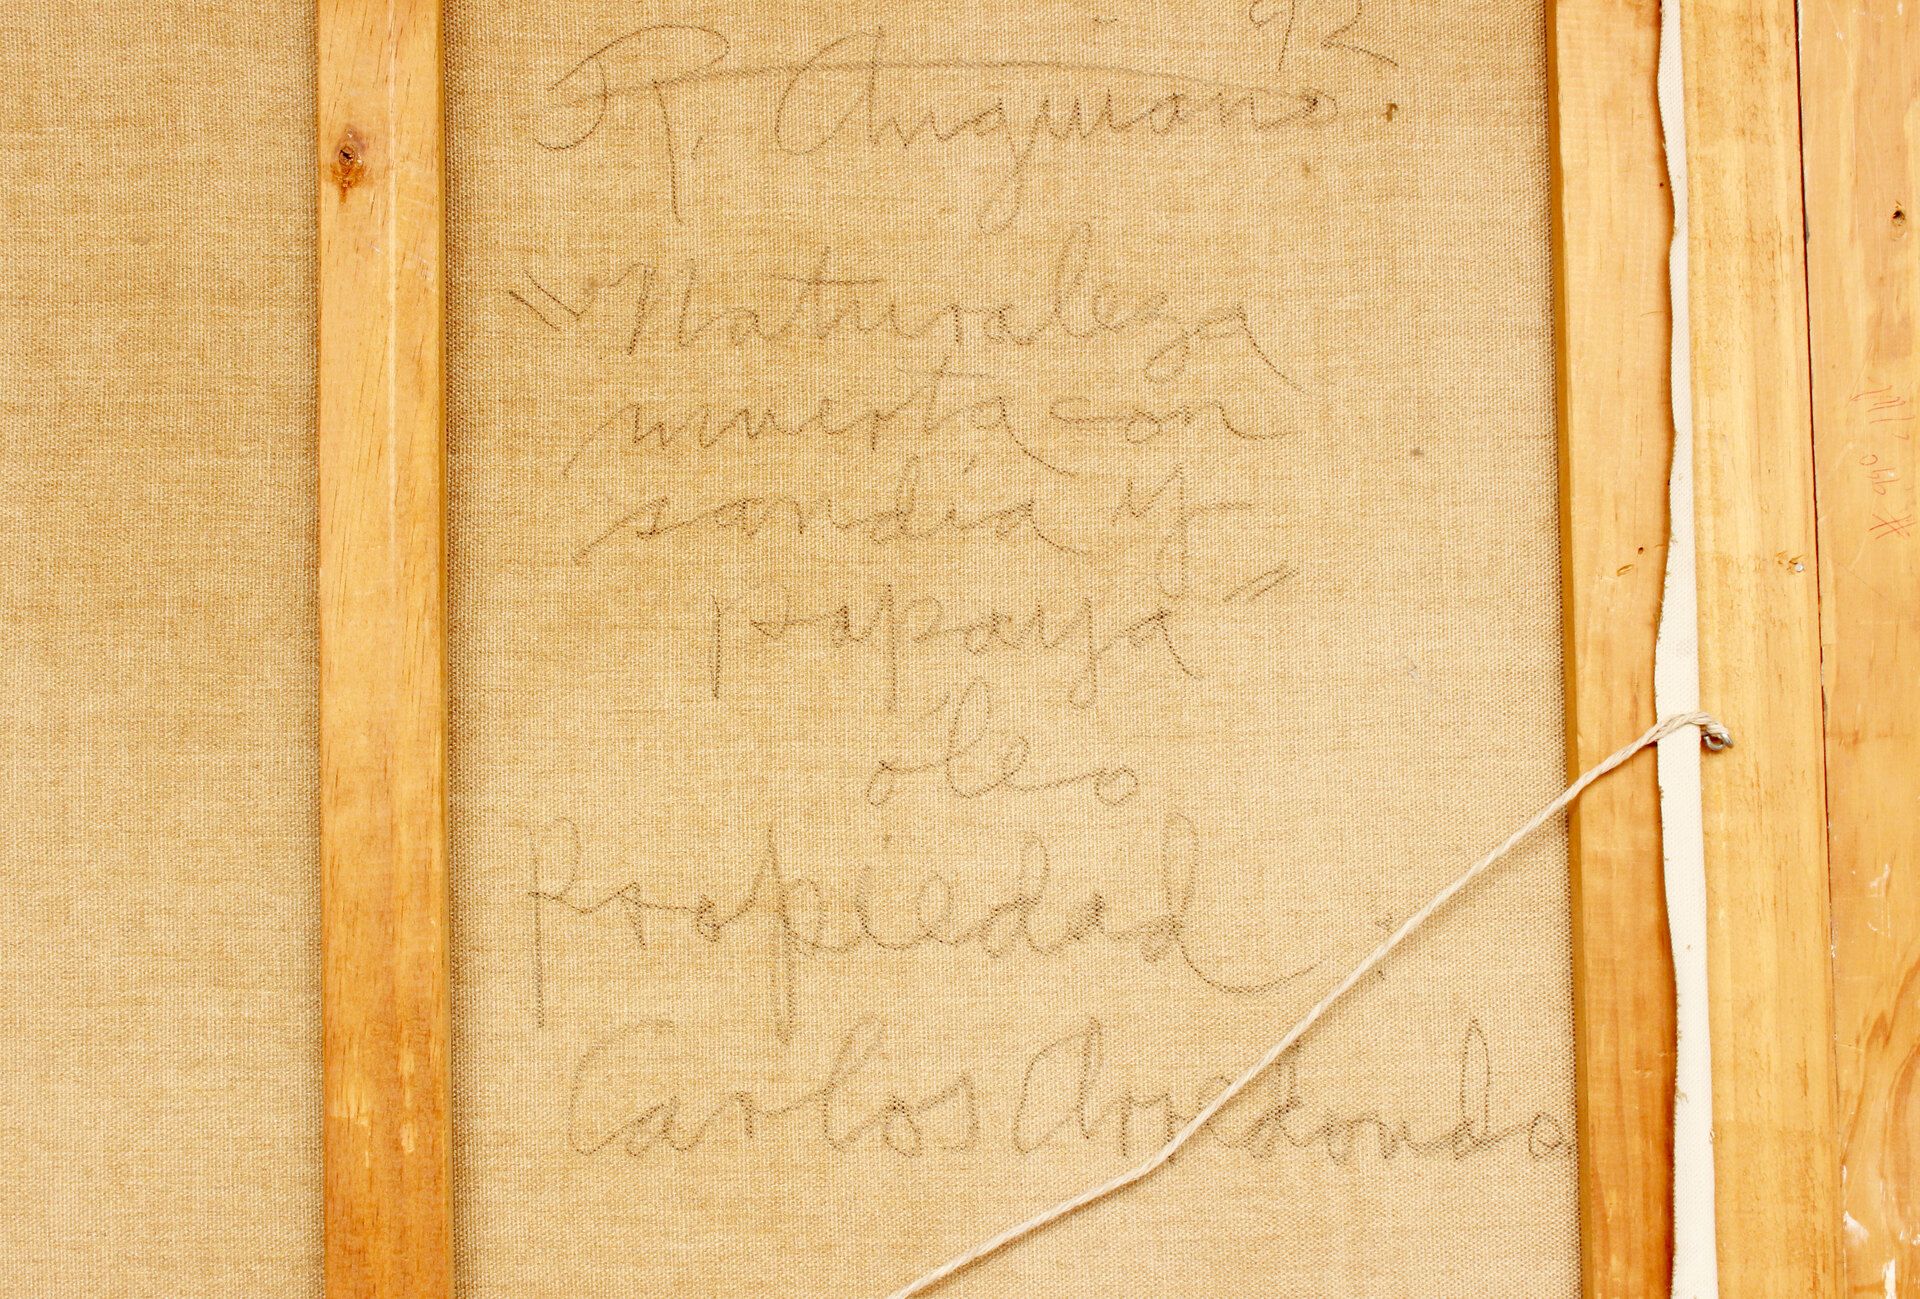 92
R. Anguiano.
"Naturaleza
muerta con
sandía y
papaya"
óleo
Propiedad :
Carlos Arredondo